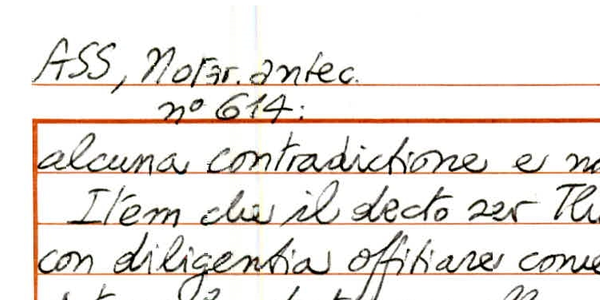 ASS, Notar. antec.
nº 614:
alcuna contradictione e
Item che il decto ser
con diligentia offitiare